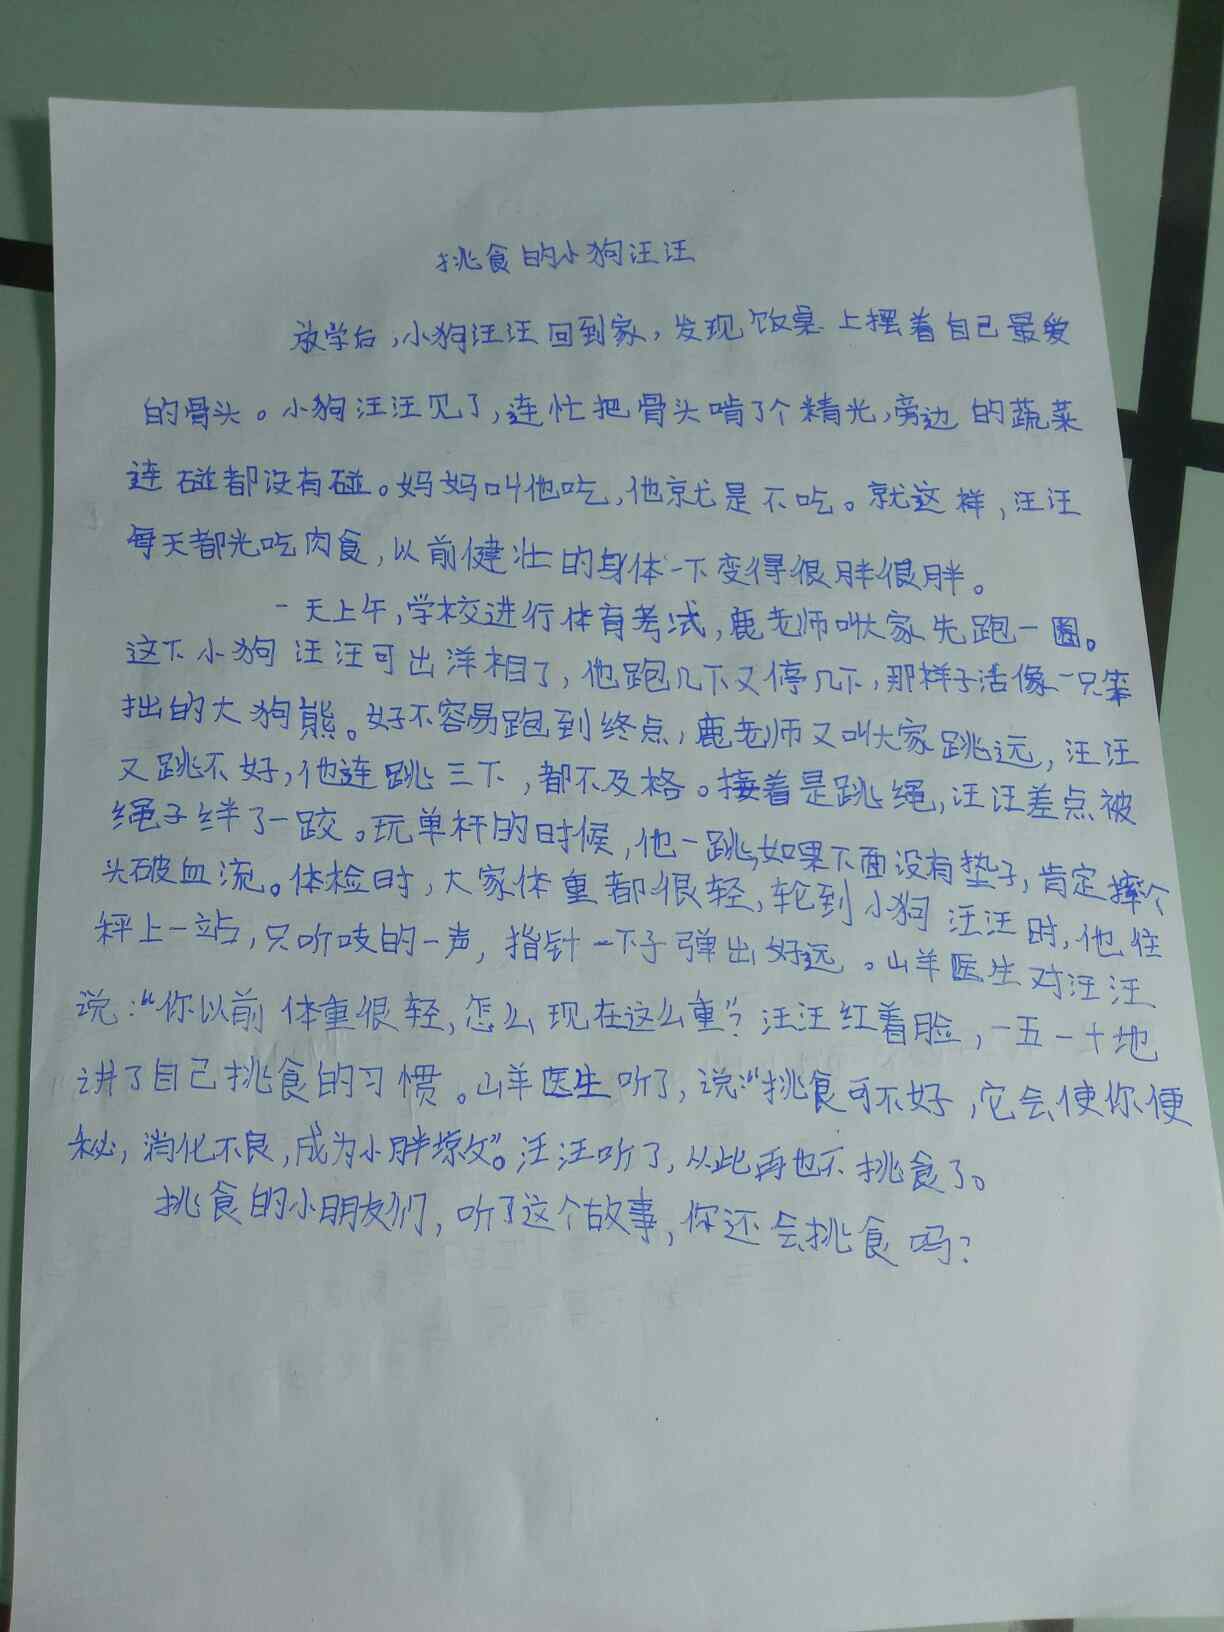 挑食的小狗汪汪
放学后，小狗汪汪回到家，发现饭桌上摆着自己最爱
的骨头。小狗汪汪见了，连忙把骨头啃了个精光，旁边的蔬菜
连碰都没有碰。妈妈叫他吃，他就是不吃。就这样，汪汪
每天都光吃肉食，以前健壮的身体一下变得很胖很胖。
一天上午，学校进行体育考试，鹿老师叫大家先跑一圈。
这下小狗汪汪可出洋相了，他跑几下又停几下，那样子活像一只笨
拙的大狗熊。好不容易跑到终点，鹿老师又叫大家跳远，汪汪
又跳不好，他连跳三下，都不及格。接着是跳绳，汪汪差点被
绳子绊了一跤。玩单杆的时候，他一跳，如果下面没有垫子，肯定摔个
头破血流。体检时，大家体重都很轻，轮到小狗汪汪时，他往
秤上一站，只听吱的一声，指针一下子弹出好远。山羊医生对汪汪
说：“你以前体重很轻，怎么现在这么重”？汪汪红着脸，一五一十地
讲了自己挑食的习惯。山羊医生听了，说：“挑食可不好，它会使你便
秘，消化不良，成为小胖墩”。汪汪听了，从此再也不挑食了。
挑食的小朋友们，听了这个故事，你还会挑食吗？